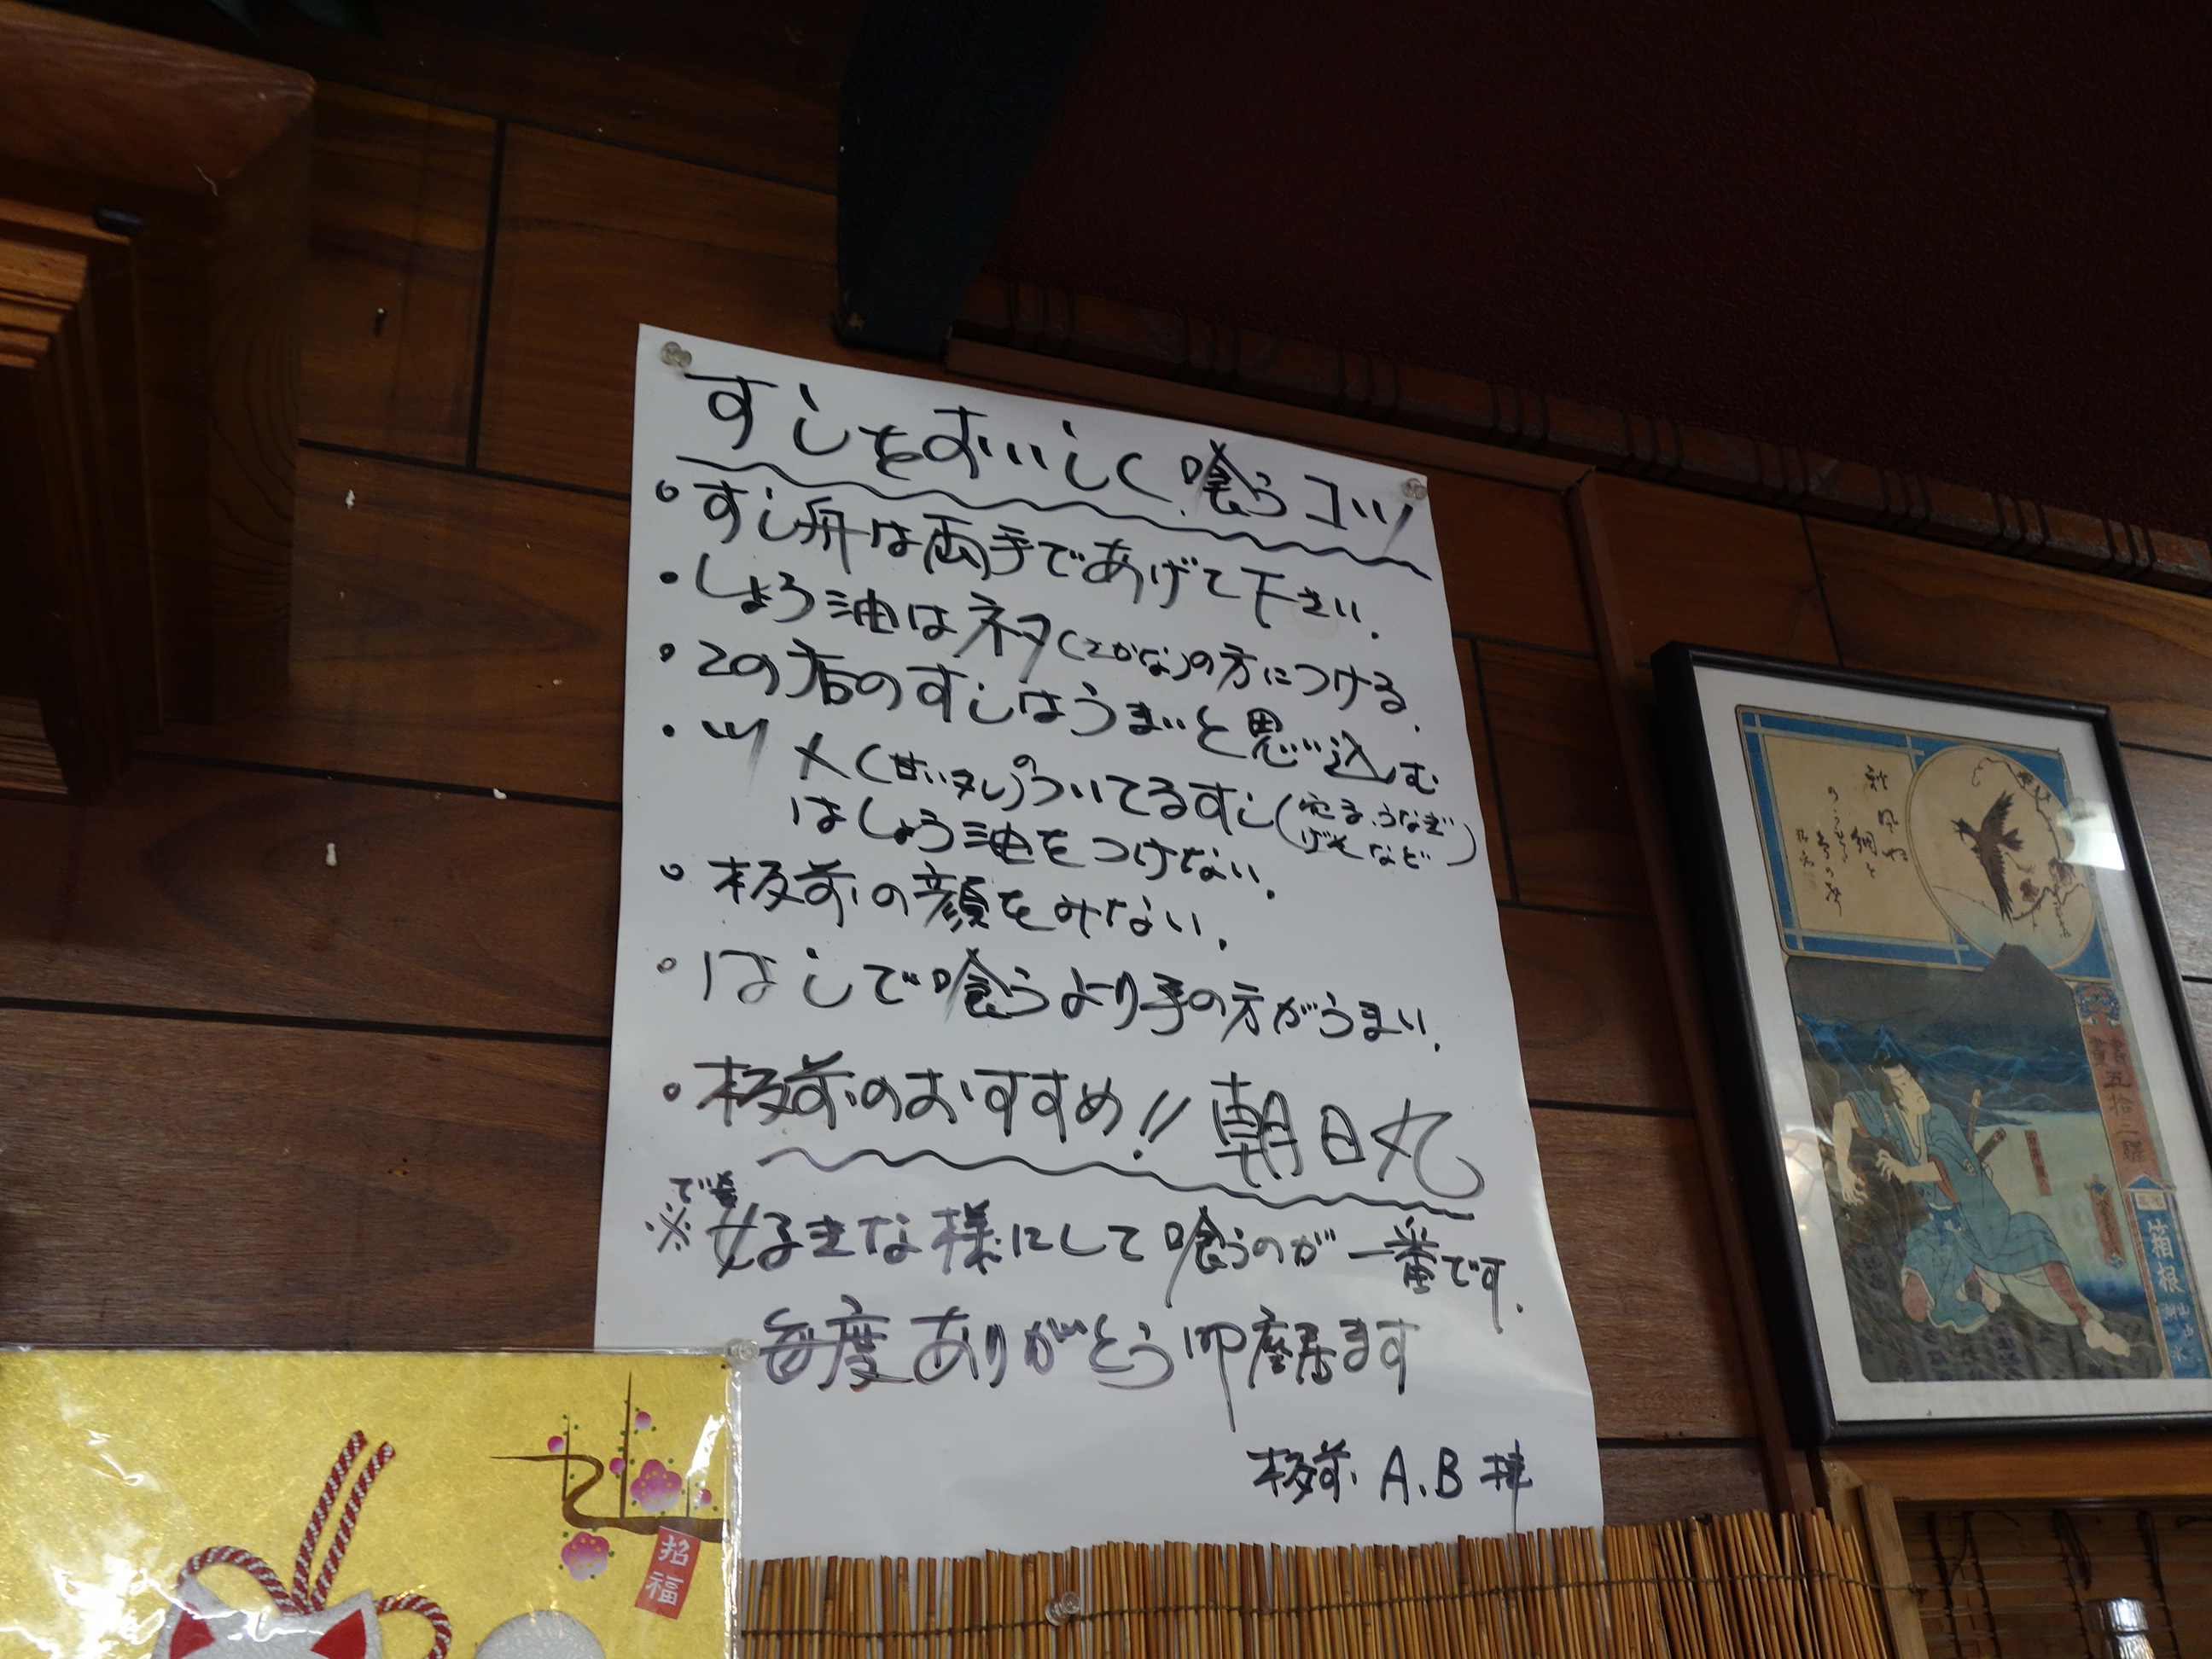 すしをおいしく喰うコツ
すし舟は両手であげて下さい.
しょう油はネタ(さかな)の方につける.
この店のすしはうまいと思い込む
ツメ(甘いタレ)のついてるすし(穴子、うなぎ
げそなど)
はしょう油をつけない.
板前の顔をみない.
はしで喰うより手の方がうまい.
板前のおすすめ!!朝日丸
でも
※好きな様にして喰うのが一番です.
毎度ありがとう御座居ます
板前 A.B 拝
招福
秋風や
箱根